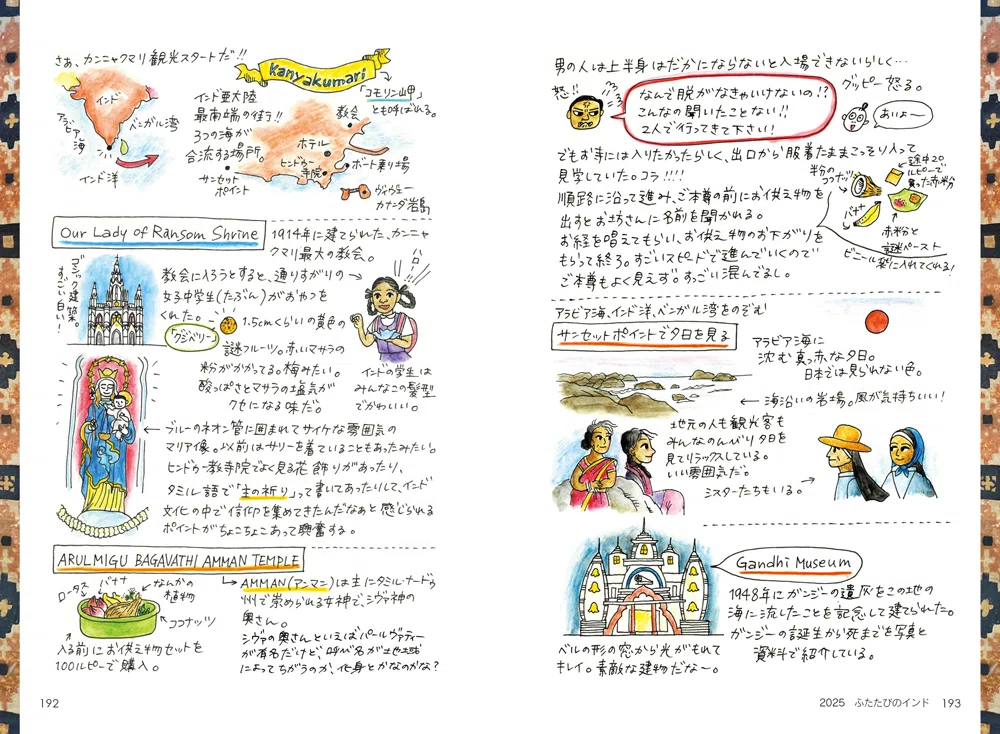 さぁ、カンニャクマリ観光スタートだ!!
Kanyakumari
「コモリン岬」
とも呼ばれる。
インド
アラビア海
ベンガル湾
インド洋
インド亜大陸
最南端の街!!
3つの海が
合流する場所。
教会
ホテル
ヒンドゥー
寺院
ボート乗り場
サンセット
ポイント
ヴィヴェー
カナンダ岩島
Our Lady of Ransom Shrine
1914年に建てられた、カンニャ
クマリ最大の教会。
ゴシック建築。
すごい白い!
教会に入ろうとすると、通りすがりの
女子中学生(たぶん)がおやつを
くれた。
ハロー!!
「クジベリー」
1.5cmくらいの黄色の
謎フルーツ。赤いマサラの
粉がかかってる。梅みたい。
酸っぱさとマサラの塩気が
クセになる味だ。
インドの学生は
みんなこの髪型
でかわいい。
ブルーのネオン管に囲まれてサイケな雰囲気の
マリア像。以前はサリーを着ていることもあったみたい。
ヒンドゥー教寺院でよく見る花飾りがあったり、
タミル語で「主の祈り」って書いてあったりして、インド
文化の中で信仰を集めてきたんだなぁと感じられる
ポイントがちょこちょこあって興奮する。
ARULMIGU BAGAVATHI AMMAN TEMPLE
ロータス
バナナ
なんかの
植物
ココナッツ
入る前にお供え物セットを
100ルピーで購入。
AMMAN(アンマン)は主にタミル・ナードゥ
州で崇められる女神で、シヴァ神の
奥さん。
シヴァの奥さんといえばパールヴァティー
が有名だけど、呼び名が地域
によってちがうのか、化身とかなのかな?
192
男の人は上半身はだかにならないと入場できないらしく…
怒!!
なんで脱がなきゃいけないの!?
こんなの聞いたことない!!
2人で行ってきて下さい!
グッピー怒る。
あいよ〜
でもお寺には入りたかったらしく、出口から服着たままこっそり入って
見学していた。コラ!!!!
順路に沿って進み、ご本尊の前にお供え物を
出すとお坊さんに名前を聞かれる。
お経を唱えてもらい、お供え物のお下がりを
もらって終了。すごいスピードで進んでいくので
ご本尊もよく見えず。すっごい混んでるし。
半分の
ココナッツ
途中20
ルピーで
買った赤粉
バナナ
赤粉と
謎ペースト
ビニール袋に入れてくれる!
アラビア海、インド洋、ベンガル湾をのぞむ
サンセットポイントで夕日を見る
アラビア海に
沈む真っ赤な夕日。
日本では見られない色。
海沿いの岩場。風が気持ちいい!
地元の人も観光客も
みんなのんびり夕日を
見てリラックスしている。
いい雰囲気だ。
ミスターたちもいる。
Gandhi Museum
1948年にガンジーの遺灰をこの地の
海に流したことを記念して建てられた。
ガンジーの誕生から死までを写真と
資料で紹介している。
ベルの形の窓から光がもれて
キレイ。素敵な建物だな〜。
2025 ふたたびのインド 193